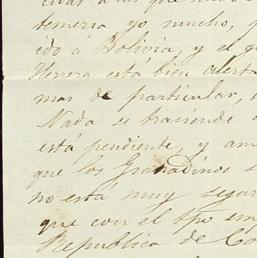 temeria yo mucho, y
ido á Bolivia, y el g
Herrera está bien alerta
mas de particular,
Nada se trasciende
está pendiente, y am
que los Granadinos s
no está muy segur
que con el tpo em
Republica de Co